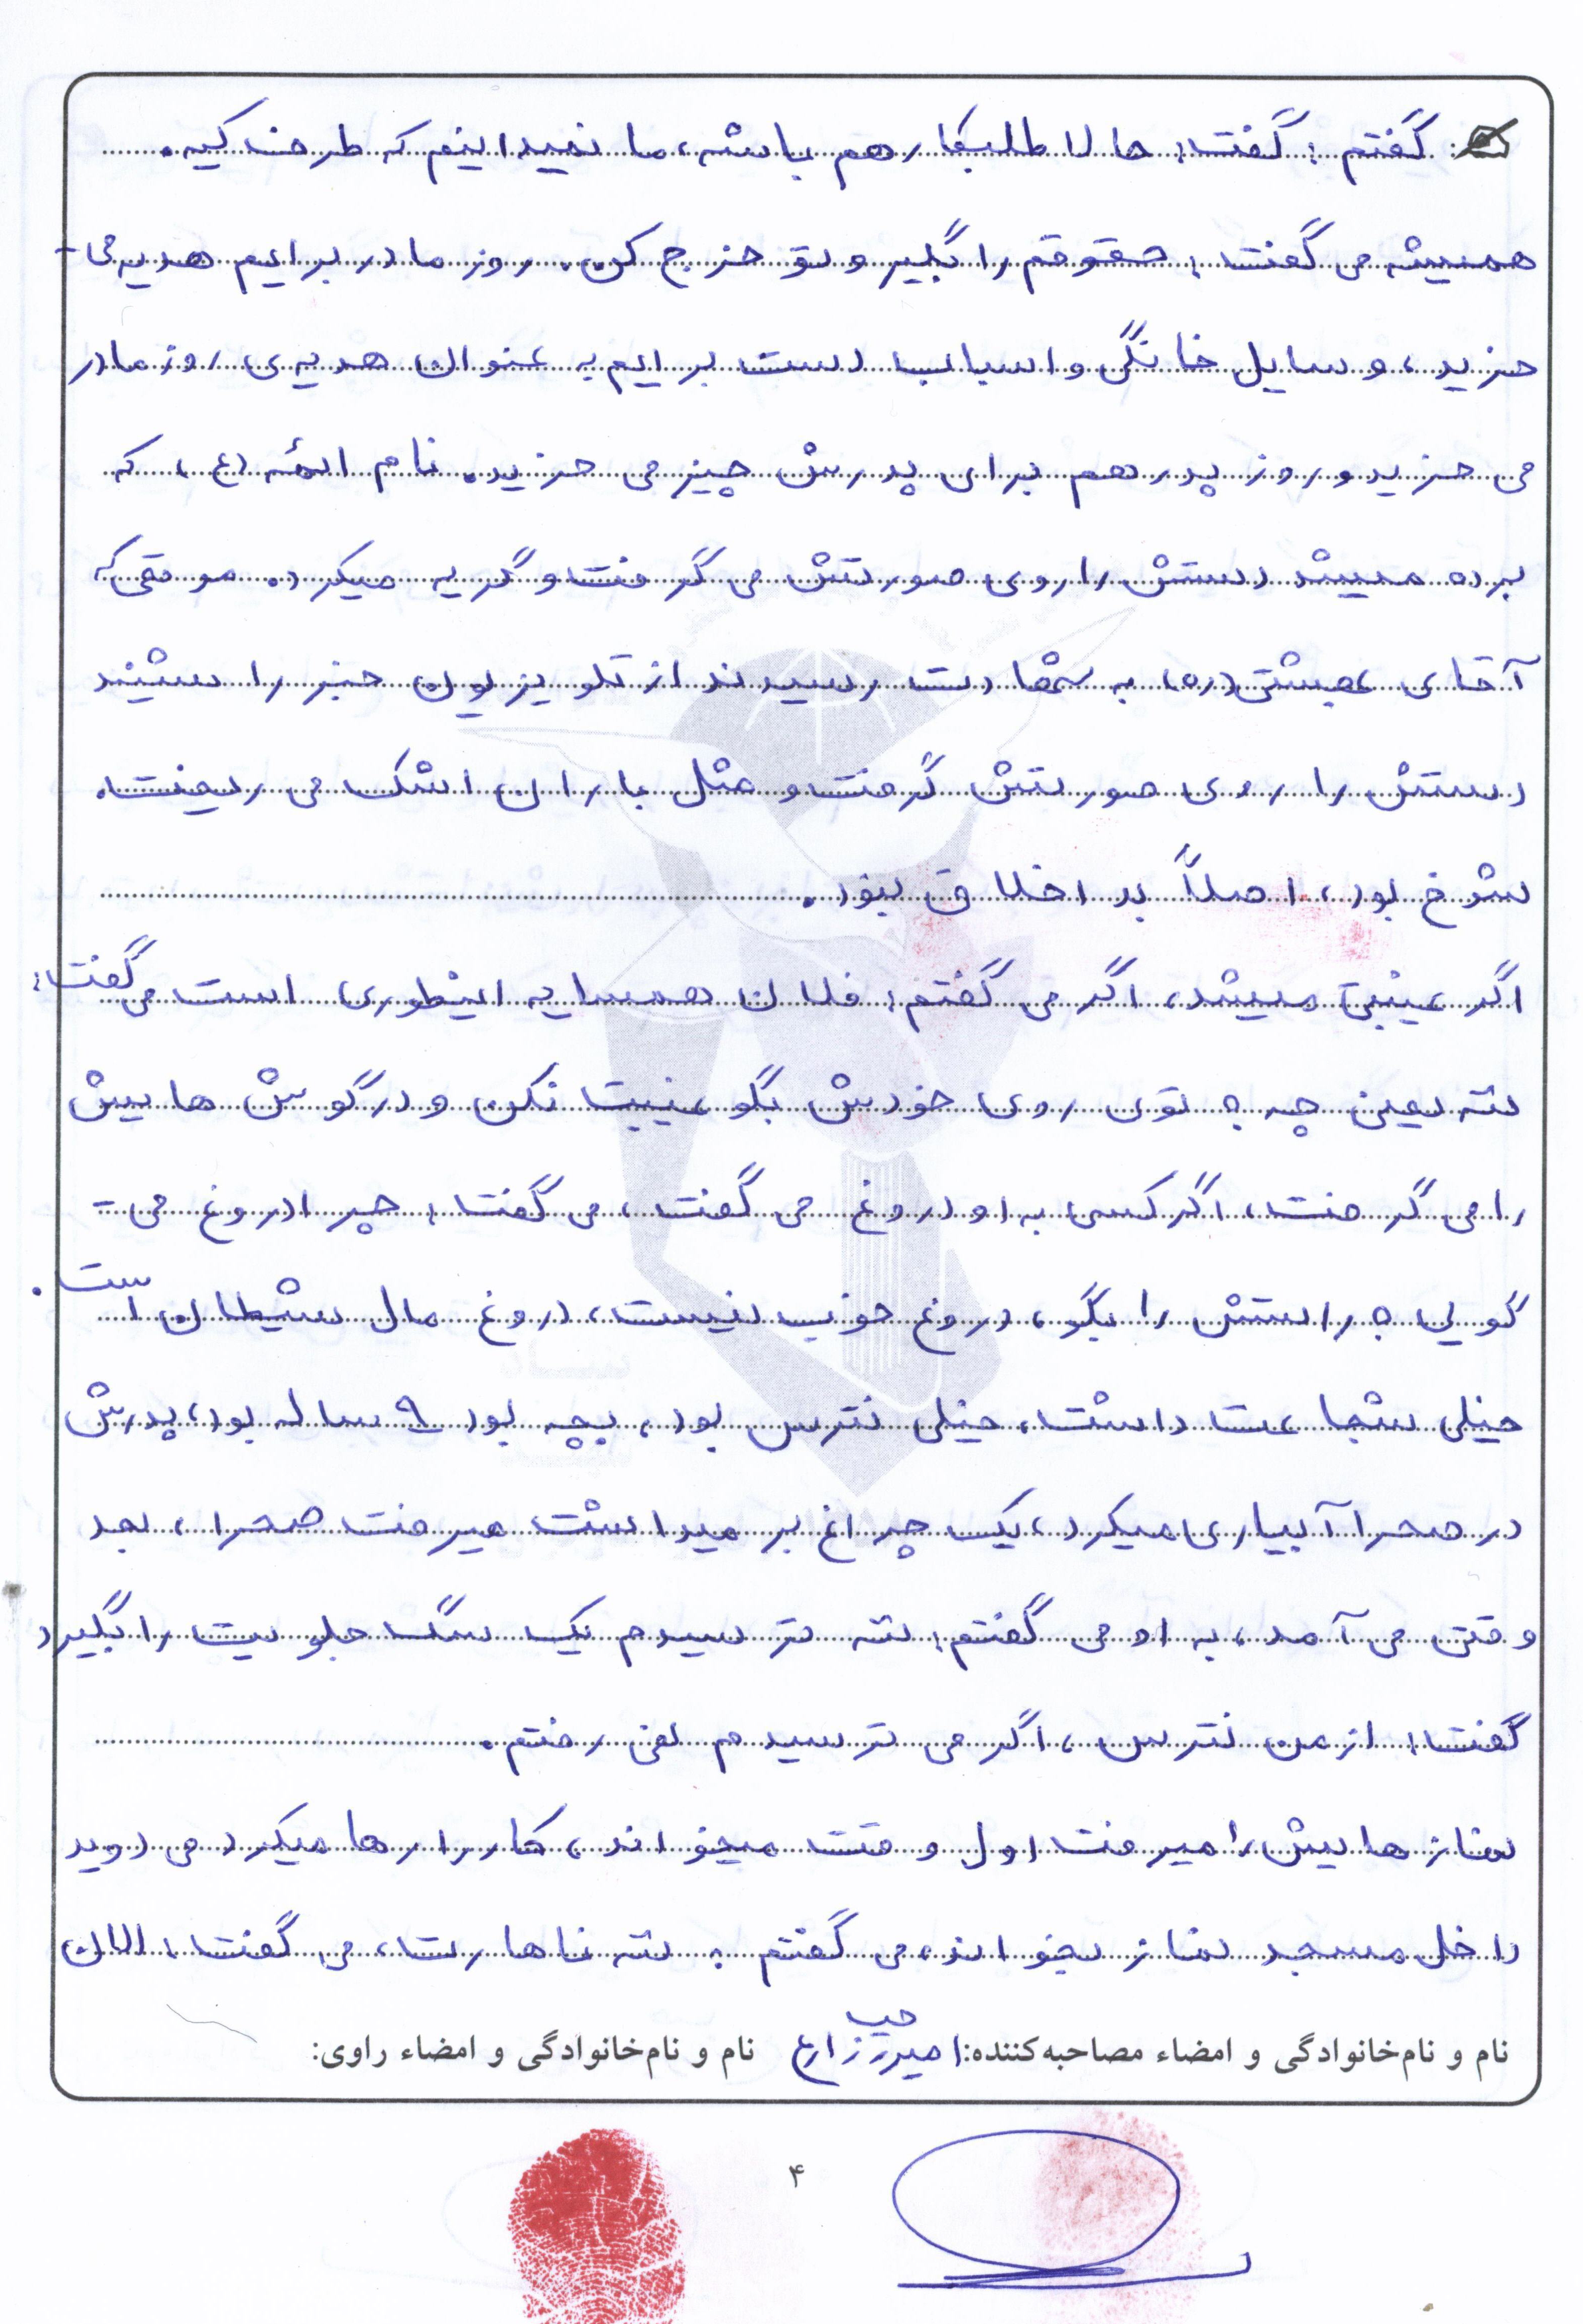 گفتم: گفت: حالا طلبکار هم باشه، ما نمیدانیم که طرف کیه.
همیشه می گفت: حقوقم را بگیر و تو خرج کن. روز مادر برایم هدیه می-
خرید، وسایل خانگی و اسباب دست برایم به عنوان هدیه ی روز مادر
می خرید و روز پدر هم برای پدرش چیز می خرید. نام ائمه (ع)، که
برده میشد دستش را روی صورتش می گرفت و گریه میکرد. موقعی که
آقای بهشتی (ره) به شهادت رسیدند از تلویزیون خبر را شنید
دستش را روی صورتش گرفت و مثل باران اشک می ریخت.
شوخ بود، اصلاً بد اخلاق نبود.
اگر غیبتی میشد، اگر می گفتم: فلان همسایه اینطوری است می گفت:
ننه یعنی چه؟ توی روی خودش بگو غیبت نکن و در گوش هایش
را می گرفت، اگر کسی به او دروغ می گفت، می گفت: چرا دروغ می-
گویی؟ راستش را بگو، دروغ خوب نیست، دروغ مال شیطان است.
خیلی شجاعت داشت، خیلی نترس بود، بچه بود ۹ ساله بود، پدرش
در صحرا آبیاری میکرد، یک چراغ بر میداشت میرفت صحرا، بعد
وقتی می آمد، به او می گفتم: ننه ترسیدم یک سگ جلویت را بگیرد
گفت: از من نترس، اگر می ترسیدم نمی رفتم.
نماز هایش را میرفت اول وقت میخواند، کار را رها میکرد می دوید
داخل مسجد نماز بخواند، می گفتم: ننه ناهارت، می گفت: الان
نام و نام‌خانوادگی و امضاء مصاحبه‌کننده: زارع نام و نام‌خانوادگی و امضاء راوی:
۴